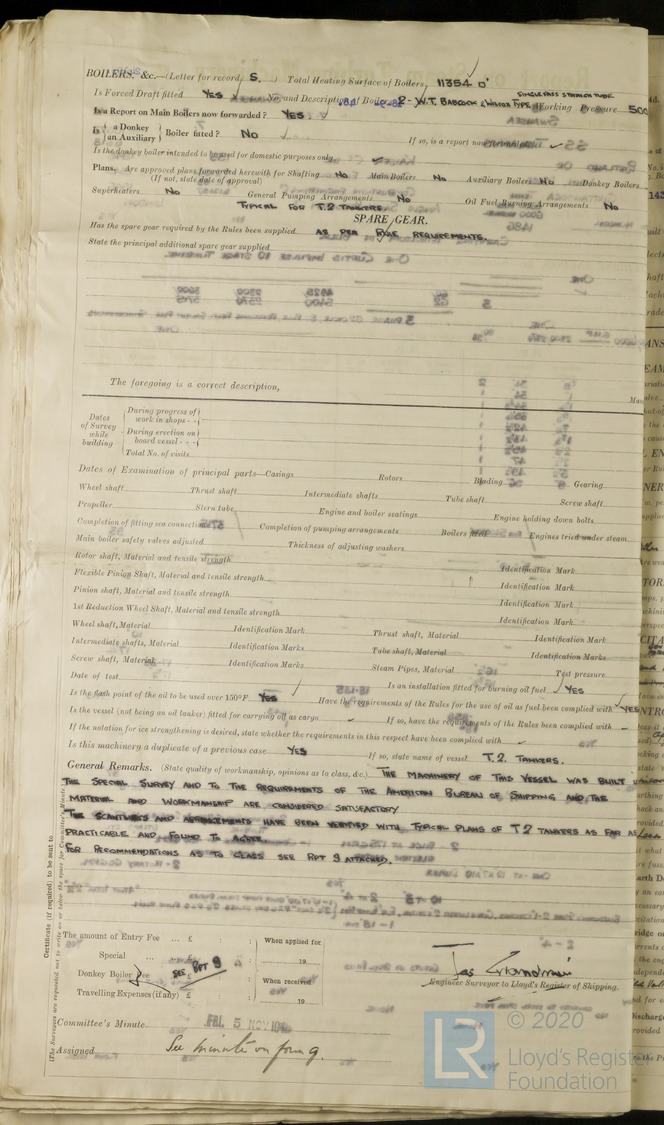 BOILERS, &c.—(Letter for record S. ) Total Heating Surface of Boilers 11354 □'
Is Forced Draft fitted YES No. and Description of Boilers 2 - W.T. BABCOCK & WILCOX TYPE SINGLE PASS STRAIGHT TUBE Working Pressure 500
Is a Report on Main Boilers now forwarded? YES.
Is { a Donkey / an Auxiliary } Boiler fitted? NO If so, is a report now
Is the donkey boiler intended to be used for domestic purposes only
Plans. Are approved plans forwarded herewith for Shafting NO Main Boilers NO Auxiliary Boilers NO Donkey Boilers
(If not, state date of approval)
Superheaters NO General Pumping Arrangements NO Oil Fuel Burning Arrangements NO
TYPICAL FOR T.2 TANKERS
SPARE GEAR.
Has the spare gear required by the Rules been supplied AS PER RULE REQUIREMENTS.
State the principal additional spare gear supplied
The foregoing is a correct description,
Dates of Survey while building
During progress of work in shops - -
During erection on board vessel - - -
Total No. of visits
Dates of Examination of principal parts—Casings Rotors Blading Gearing
Wheel shaft Thrust shaft Intermediate shafts Tube shaft Screw shaft
Propeller Stern tube Engine and boiler seatings Engine holding down bolts
Completion of fitting sea connections Completion of pumping arrangements Boilers fixed Engines tried under steam
Main boiler safety valves adjusted Thickness of adjusting washers
Rotor shaft, Material and tensile strength Identification Mark
Flexible Pinion Shaft, Material and tensile strength Identification Mark
Pinion shaft, Material and tensile strength Identification Mark
1st Reduction Wheel Shaft, Material and tensile strength Identification Mark
Wheel shaft, Material Identification Mark Thrust shaft, Material Identification Mark
Intermediate shafts, Material Identification Marks Tube shaft, Material Identification Marks
Screw shaft, Material Identification Marks Steam Pipes, Material Test pressure
Date of test Is an installation fitted for burning oil fuel YES
Is the flash point of the oil to be used over 150°F. YES Have the requirements of the Rules for the use of oil as fuel been complied with YES
Is the vessel (not being an oil tanker) fitted for carrying oil as cargo If so, have the requirements of the Rules been complied with
If the notation for ice strengthening is desired, state whether the requirements in this respect have been complied with
Is this machinery a duplicate of a previous case YES If so, state name of vessel T.2. TANKERS.
General Remarks. (State quality of workmanship, opinions as to class, &c.) THE MACHINERY OF THIS VESSEL WAS BUILT UNDER
THE SPECIAL SURVEY AND TO THE REQUIREMENTS OF THE AMERICAN BUREAU OF SHIPPING AND THE
MATERIAL AND WORKMANSHIP ARE CONSIDERED SATISFACTORY
THE SCANTLINGS AND ARRANGEMENTS HAVE BEEN VERIFIED WITH TYPICAL PLANS OF T2 TANKERS AS FAR AS
PRACTICABLE AND FOUND TO AGREE.
FOR RECOMMENDATIONS AS TO CLASS SEE RPT 9 ATTACHED.
Certificate (if required) to be sent to
(The Surveyors are requested not to write on or below the space for Committee's Minute.)
The amount of Entry Fee ... £ : : When applied for
Special ... ... £ : : 19
Donkey Boiler Fee ... £ : : SEE RPT 9 When received
Travelling Expenses (if any) £ : : 19
Engineer Surveyor to Lloyd's Register of Shipping.
Committee's Minute FRI. 5 NOV 194
Assigned See minute on form 9.
© 2020
LR Lloyd's Register
Foundation